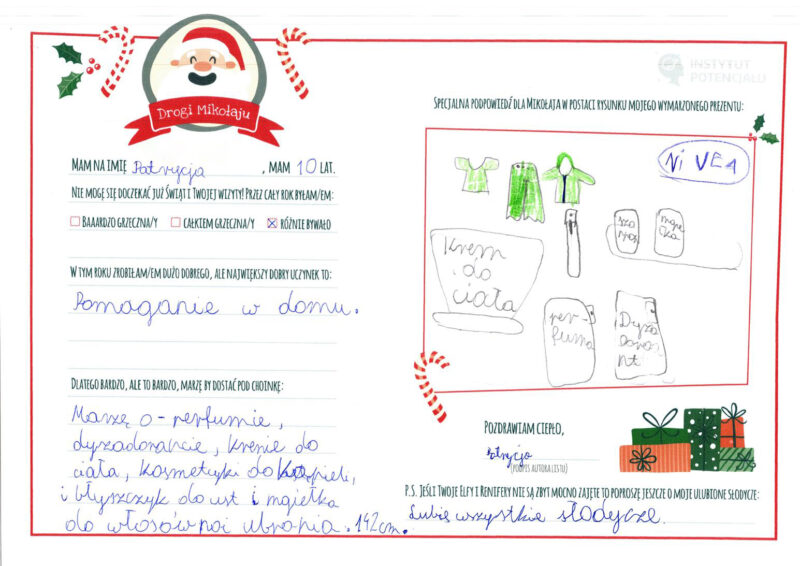 Drogi Mikołaju
MAM NA IMIĘ Patrycja, MAM 10 LAT.
NIE MOGĘ SIĘ DOCZEKAĆ JUŻ ŚWIĄT I TWOJEJ WIZYTY! PRZEZ CAŁY ROK BYŁAM/EM:
BAAARDZO GRZECZNA/Y CAŁKIEM GRZECZNA/Y RÓŻNIE BYWAŁO
W TYM ROKU ZROBIŁAM/EM DUŻO DOBREGO, ALE NAJWIĘKSZY DOBRY UCZYNEK TO:
Pomaganie w domu.
DLATEGO BARDZO, ALE TO BARDZO, MARZĘ BY DOSTAĆ POD CHOINKĘ:
Marzę o perfumie,
dyzadorancie, kremie do
ciała, kosmetyki do kąpieli,
i błyszczyk do ust i mgiełka
do włosów no i ubrania. 142cm.
INSTYTUT
POTENCJAŁU
SPECJALNA PODPOWIEDŹ DLA MIKOŁAJA W POSTACI RYSUNKU MOJEGO WYMARZONEGO PREZENTU:
NIVEA
Krem
do
ciała
sza
mpo
mgie
łka
per-
fuma
Dyza
doran
nt
POZDRAWIAM CIEPŁO,
Patrycja
(PODPIS AUTORA LISTU)
P.S. JEŚLI TWOJE ELFY I RENIFERY NIE SĄ ZBYT MOCNO ZAJĘTE TO POPROSZĘ JESZCZE O MOJE ULUBIONE SŁODYCZE:
Lubię wszystkie słodycze.